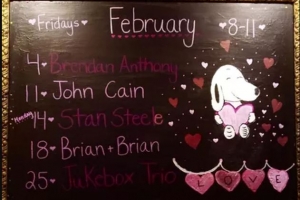 Fridays February 8-11
4 Brendan Anthony
11 John Cain
Monday 14 Stan Steele
18 Brian + Brian
25 Jukebox Trio
LOVE